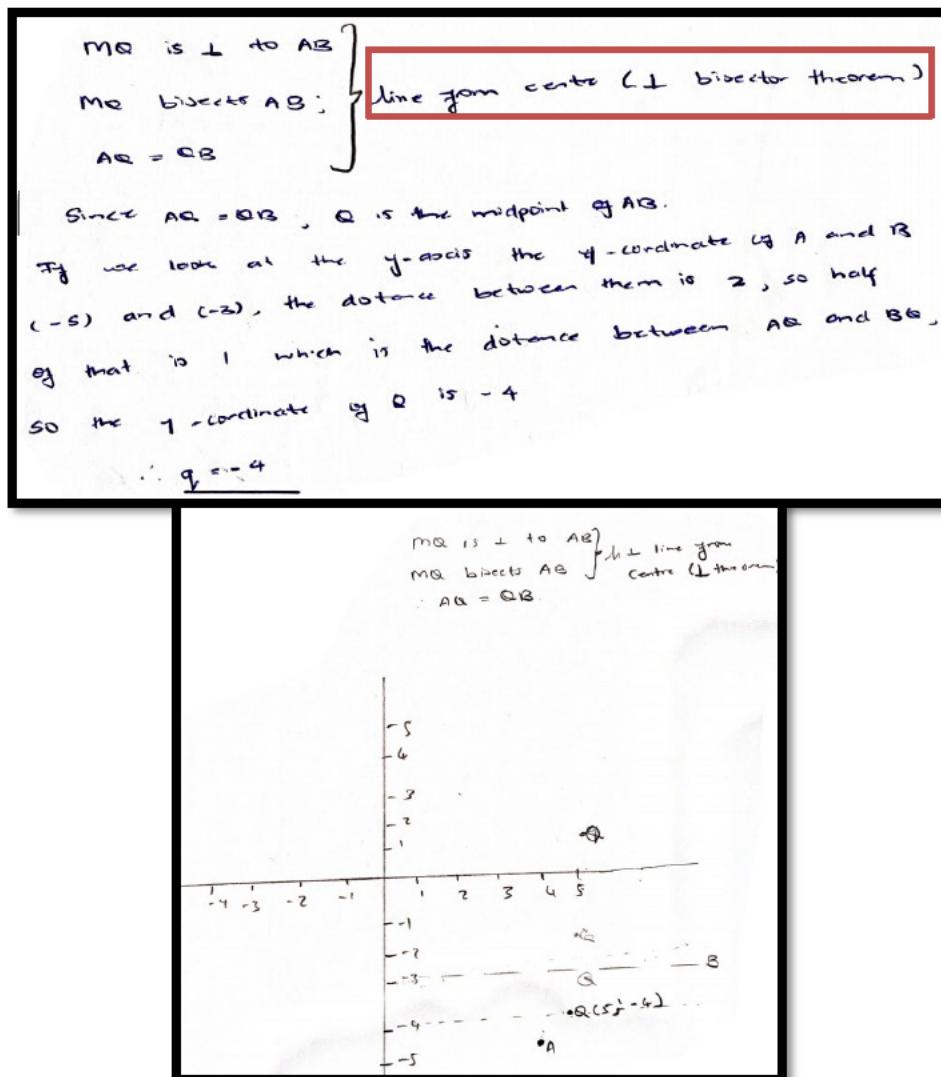 MQ is ⊥ to AB
MQ bisects AB;
AQ = QB
line from centre (⊥ bisector theorem)
Since AQ = QB, Q is the midpoint of AB.
If we look at the y-axis the y-cordinate of A and B
(-5) and (-3), the distance between them is 2, so half
of that is 1 which is the distance between AQ and BQ,
so the y-cordinate of Q is -4
∴ q = -4
MQ is ⊥ to AB
MQ bisects AB
∴ AQ = QB
⊥ line from
centre (⊥ theorem)
5
4
3
2
1
-4 -3 -2 -1 1 2 3 4 5
-1
-2
B
-3
Q
Q(5; -4)
-4
A
-5